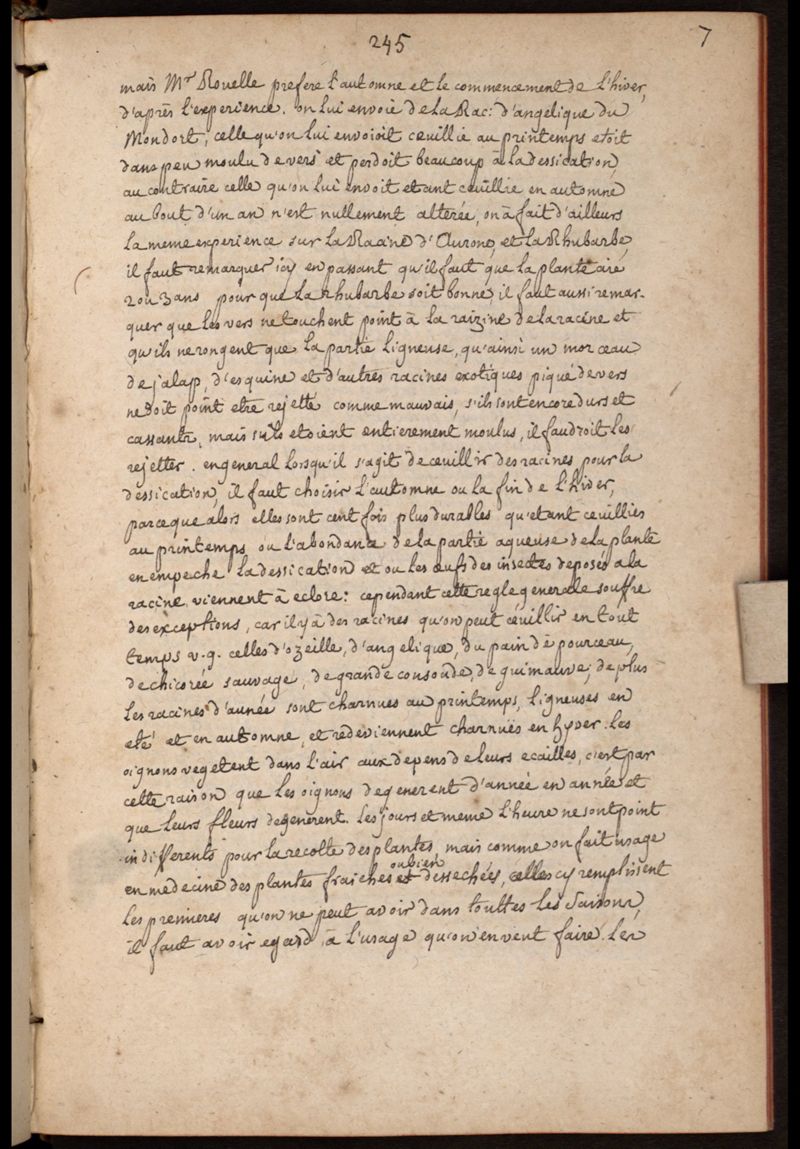 245
7
mais Mr Rouelle prefere l'automne et le commencement de l'hiver,
d'après l'experience. on lui envoie de la Rac: d'angelique du
Mondort, celle qu'on lui envoioit ceuillie au printemps etoit
dans peu moulu de vers et perdoit beaucoup à la dessication,
au contraire celle qu'on lui envoit etant ceuillie en automne
au bout d'un an n'est nullement alterée, on à fait d'ailleurs
la meme experience sur la Racine d'Aurone, et la Rhubarbe,
il faut remarquer icy en passant qu'il faut que la plante aie
2 ou 3 ans pour que la rhubarbe soit bonne, il faut aussi remar-
quer que les vers ne touchent point à la raizine de la racine et
qu'ils ne rongent que la partie ligneuse, qu'ainsi un morceau
de jalap, d'esquine et d'autres racines exotiques piqué de vers
ne doit point etre rejetté comme mauvais, s'ils sont encore durs et
cassants, mais s'ils etoient entierement moulus, il faudroit les
rejetter. en general lorsqu'il s'agit de ceuillir des racines pour la
dessication, il faut choisir l'automne ou la fin de l'hiver,
parceque alors elles sont cent fois plus durables qu'etant ceuillies
au printemps ou l'abondance de la partie aqueuse de la plante
en empeche la dessication et ou les oeufs des insectes deposés a la
racine viennent à eclore: cependant cette regle generale souffre
des exceptions, car il y à des racines qu'on peut ceuillir en tout
temps v.g. celles d'ozeille, d'angelique, du pain de pourceau,
de chicorée sauvage, de grande consoude, de guimauve, de plus
les racines d'aunée sont charnues au printemps, ligneuses en
eté et en automne, et redeviennent charnues en hyver. les
oignons vegetent dans l'air aux depens de leurs ecailles, c'est par
cette raison que les oignons degenerent d'année en année et
que leurs fleurs degenerent. les jours et meme l'heure ne sont point
indifferents pour la recolte des plantes, mais comme on fait usage
en medecine des plantes fraiches et ou bien dessechées, celles cy remplissent
les premieres qu'on ne peut avoir dans touttes les Saisons,
il faut avoir egard à l'usage qu'on en veut faire. les